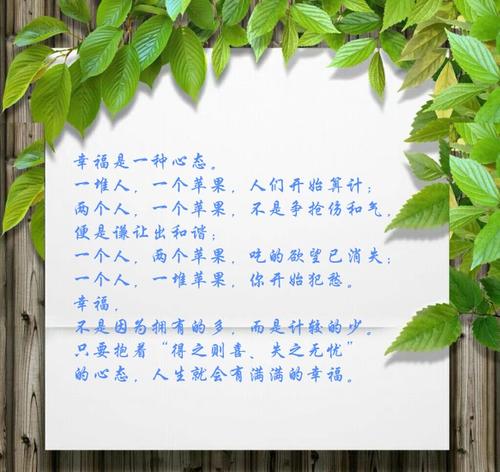 幸福是一种心态。
一堆人，一个苹果，人们开始算计；
两个人，一个苹果，不是争抢伤和气，
便是谦让出和谐；
一个人，两个苹果，吃的欲望已消失；
一个人，一堆苹果，你开始犯愁。
幸福，
不是因为拥有的多，而是计较的少。
只要抱着“得之则喜、失之无忧”
的心态，人生就会有满满的幸福。